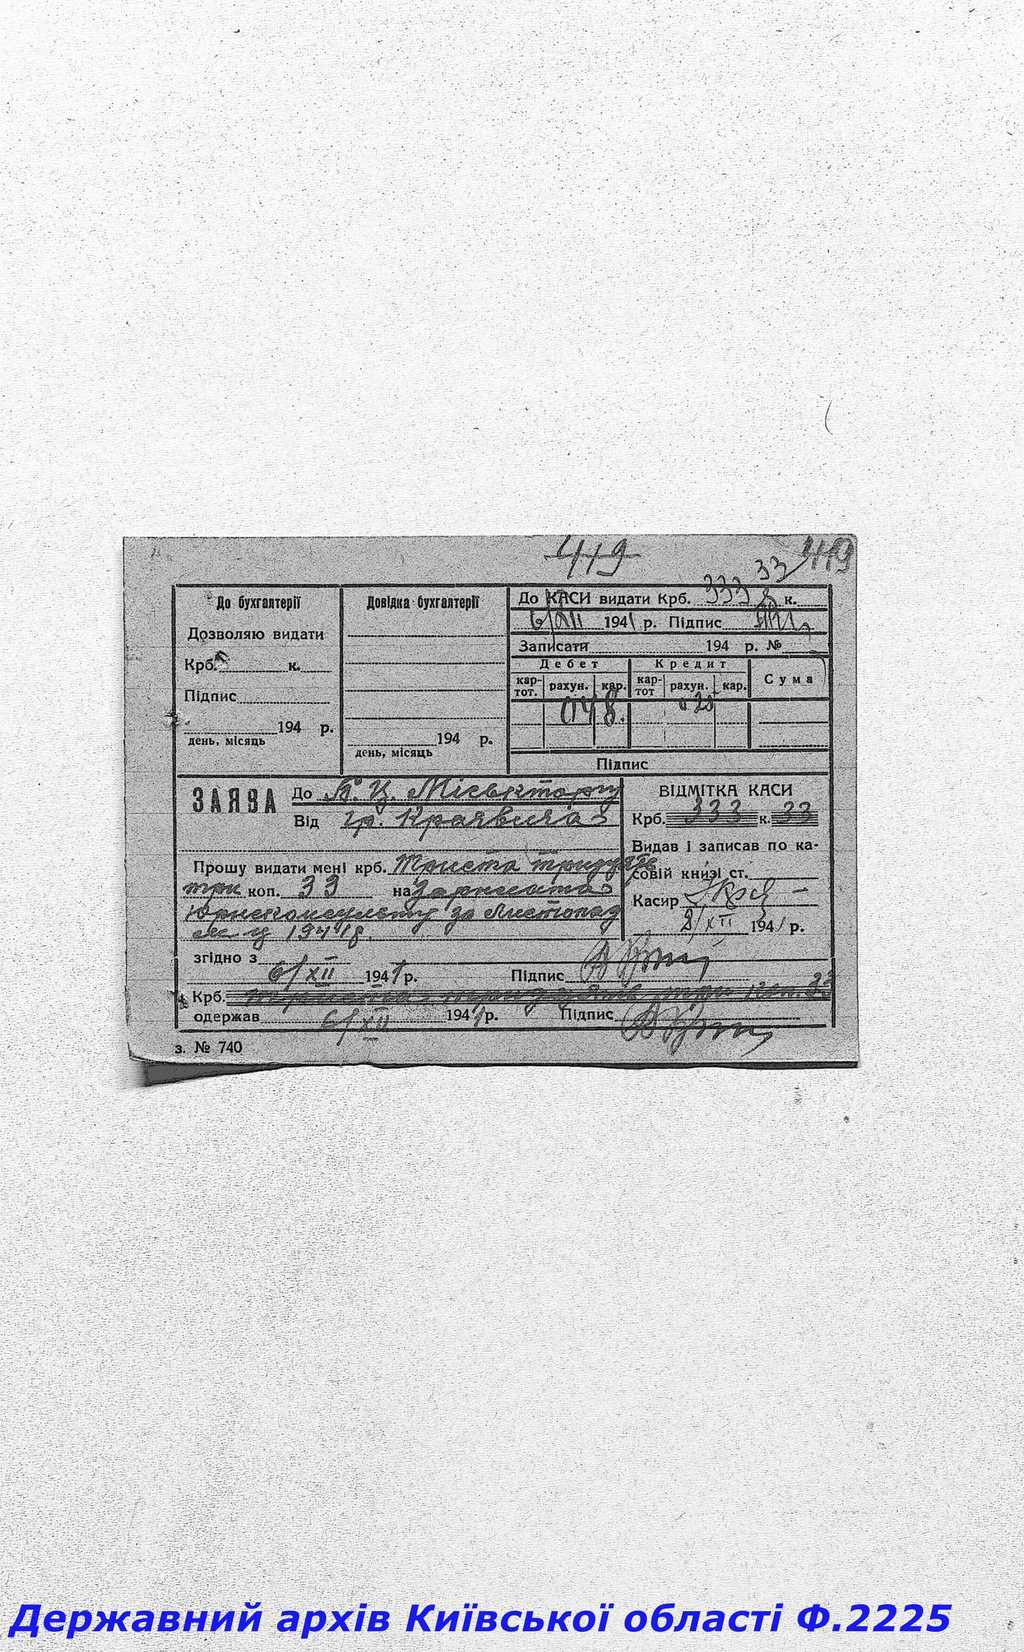 419
419
До бухгалтерії
Дозволяю видати
Крб. к.
Підпис
194 р.
день, місяць
Довідка бухгалтерії
194 р.
день, місяць
До КАСИ видати Крб. 333 33 к.
6/XII 1941 р. Підпис
Записати 194 р. №
Дебет Кредит Сума
кар-тот. рахун. кар. кар-тот рахун. кар.
048.
Підпис
ЗАЯВА До Б. Ц. Міськторгу
Від гр.
Прошу видати мені крб. Триста тридцять
три коп. 33 на зарплата
Юрисконсульту за Листопад
м-ц 1941 р.
ВІДМІТКА КАСИ
Крб. 333 к. 33
Видав і записав по ка-
совій книзі ст.
Касир
8/XII 1941 р.
згідно з
6/XII 1941 р. Підпис
Крб. триста тридцять три коп. 33
одержав 6/XII 1941 р. Підпис
з. № 740
Державний архів Київської області Ф.2225